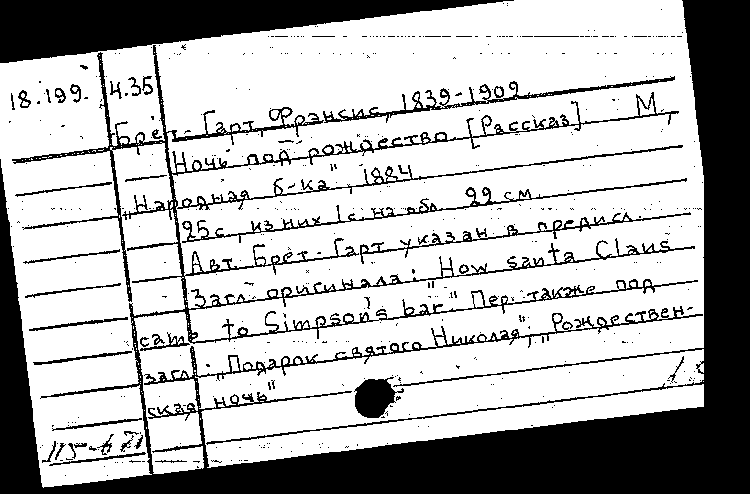 18.199. 4.35
Брет-Гарт, Фрэнсис, 1839-1909.
Ночь под рождество. [Рассказ] М.,
„Народная б-ка", 1884.
25с., из них 1с. на обл. 22 см.
Авт. Брет-Гарт указан в предисл.
Загл. оригинала: „How santa Claus
came to Simpson's bar." Пер. также под
загл.: „Подарок святого Николая"; „Рождествен-
ская ночь"